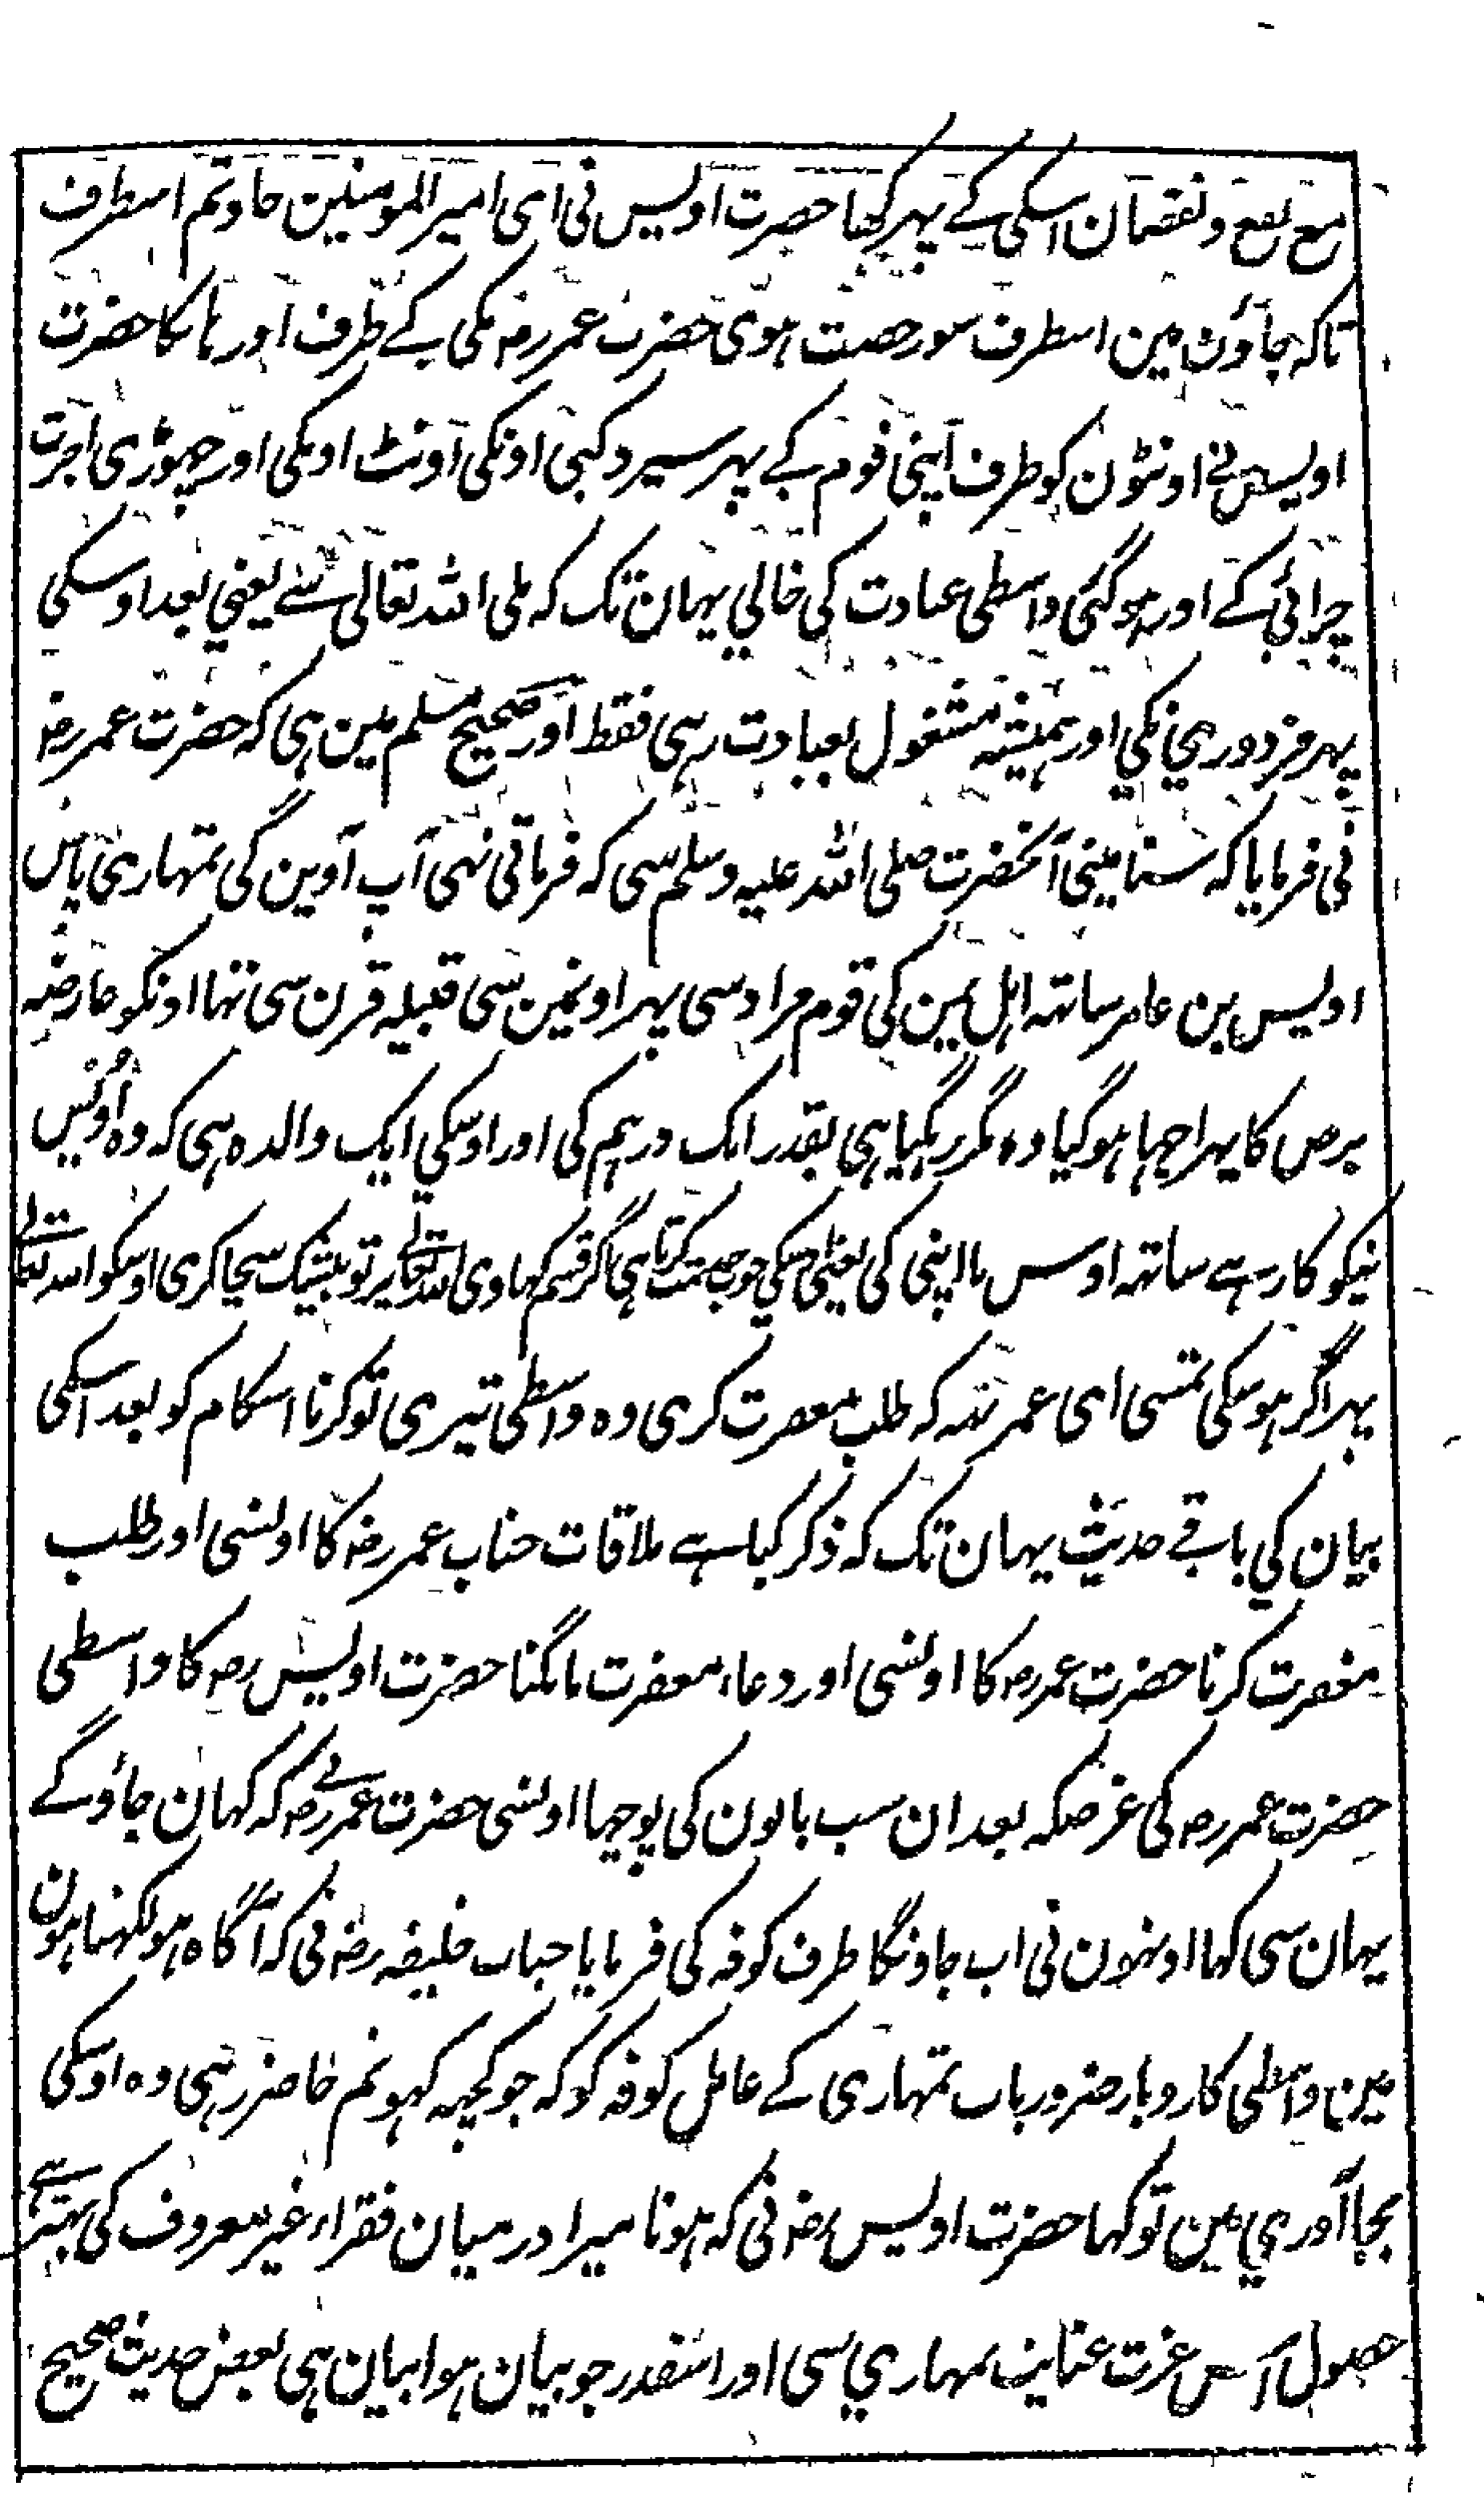 مع نفع و نقصان اسکی کے پہر کہا حضرت اویس نی ای امیر المومنین جاو تم اسطرف
تاکہ جاؤن مین اسطرف سو رخصت ہوی حضرت عمر رضہ مکی کے طرف اور ہانکا حضرت
اویس نے اونٹون کو طرف اپنی قوم کے پہر سپرد کیی اونکی اونٹ اونکی اور چہوڑی اجرت
چرائی کے اور ہوگئی واسطی عبادت کی خالي یہان تک کہ ملی اللہ تعالی سے یعنی بعد اوسکی
پہر مزدوري نکي اور ہمیشہ مشغول بعبادت رہی فقط اور صحیح مسلم مین ہی کہ حضرت عمر رضہ
نی فرمایا کہ سنا مینی آنحضرت صلی اللہ علیہ وسلم سی کہ فرماتی تہی آپ آوین گی تمہاری پاس
اویس بن عامر ساتہ اہل یمن کی قوم مراد سی پہر اونمین سی قبیلہ قرن سی تہا اونکو عارضہ
برص کا پہر اچہا ہوگیا وہ مگر رہگیا ہی بقدر ایک درہم کی اور اوسکي ایک والدہ ہی کہ وہ اویس
نیکو کار ہے ساتہ اوس ما اپنی کی یعنی اوسکی خوب خدمت کرتا ہی اگر قسم کہاوی اللہ تعالی پر تو بیشک سچا کری اوسکو اللہ تعالے
پہر اگر ہوسکی تمسی ای عمر یہہ کہ طلب مغفرت کری وہ واسطی تیری تو کرنا اسکام کو بعد اسکی
بیان کي باقے حدیث یہان تک کہ ذکر کیا ہے ملاقات جناب عمر رضہ کا اویسی اور طلب
مغفرت کرنا حضرت عمر رضہ کا اویسی اور دعاء مغفرت مانگنا حضرت اویس رضہ کا واسطی
حضرت عمر رضہ کی غرضکہ بعد ان سب باتون کی پوچہا اویسی حضرت عمر رضہ نے کہ کہان جاؤ گے
یہان سی کہا اونہون نی اب جاونگا طرف کوفہ کی فرمایا جناب خلیفہ رضہ نی کہ آگاہ ہو لکہتا ہون
مین واسطی کاروبار ضروریات تمہاری کے عامل کوفہ کو کہ جو کچہ کہو تم حاضر رہی وہ اوسکی
بجا آوري مین تو کہا حضرت اویس رضہ نی کہ ہونا میرا درمیان فقراء غیر معروف کی بہتر ہے
حصول اس عزت عنایت تمہاري سی اور اسقدر جو بیان ہوا بیان ہی بعض حدیث صحیح